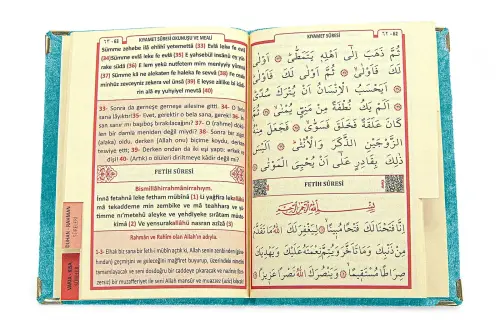 ٦٣ - 62
KIYAMET SÛRESİ OKUNUŞU VE MEALİ
Sümme zehebe ilâ ehlihî yetemettâ (33) Evlâ leke fe evlâ
(34) Sümme evlâ leke fe evlâ (35) E yahsebül insânü en yüt-
rake südâ (36) E lem yekü nutfeten min meniyyiy yümnâ
(37) Sümme kâ ne alekaten fe haleka fe sevvâ (38) Fe ceale
minhüz zevceyniz zekera vel ünsâ (39) E leyse zâlike bi kâdi-
rin alâ ey yuhyiyel mevtâ (40)
33- Sonra da gerneşe gerneşe ailesine gitti. 34- O belâ
sana lâyıktır! 35- Evet, gerektir o belâ sana, gerek! 36- İn-
san sanır mı başıboş bırakılacağını? 37- O (rahme) döküle-
len bir damla meniden değil miydi? 38- Sonra bir aşılanmış
(alaka) oldu, derken (Allah onu) biçime koydu, derken
tesviye etti; 39- Derken ondan da iki eşi yaptı: erkek ve
dişi! 40- (Artık) o ölüleri diriltmeye kâdir değil mi?
FETİH SÛRESİ
Bismillâhirrahmânirrahıym.
İnnâ fetahnâ leke fetham mübînâ (1) Li yağfira lekallâhü
mâ tekaddeme min zembike ve mâ teahhara ve yü-
timme ni'metehû aleyke ve yehdiyeke sırâtam müstekıy-
mâ (2) Ve yensurakallâhü nasran azîzâ (3)
Rahmân ve Rahîm olan Allah'ın adıyla.
1-3- Elhak biz sana bir feth-i mübîn açtık ki, Allah senin
geçmişini ve geleceğini mağfiret buyurup, üzerindeki nimetini
tamamlayacak ve seni dosdoğru bir caddeye çıkaracak
ve seni Allah
٦٢ - 62
KIYAMET SÛRESİ
ثُمَّ ذَهَبَ اِلٰٓى اَهْلِه۪ يَتَمَطّٰىۜ اَوْلٰى
لَكَ فَاَوْلٰىۙ ثُمَّ اَوْلٰى لَكَ فَاَوْلٰىۜ
اَيَحْسَبُ الْاِنْسَانُ اَنْ يُتْرَكَ سُدًىۜ
اَلَمْ يَكُ نُطْفَةً مِنْ مَنِيٍّ يُمْنٰىۙ ثُمَّ
كَانَ عَلَقَةً فَخَلَقَ فَسَوّٰىۙ فَجَعَلَ مِنْهُ
الزَّوْجَيْنِ الذَّكَرَ وَالْاُنْثٰىۜ اَلَيْسَ
ذٰلِكَ بِقَادِرٍ عَلٰٓى اَنْ يُحْيِيَ الْمَوْتٰى
FETİH SÛRESİ
بِسْمِ اللّٰهِ الرَّحْمٰنِ الرَّح۪يمِ
اِنَّا فَتَحْنَا لَكَ فَتْحًا مُب۪ينًاۙ لِيَغْفِرَ لَكَ اللّٰهُ مَا تَقَدَّمَ
مِنْ ذَنْبِكَ وَمَا تَاَخَّرَ وَيُتِمَّ نِعْمَتَهُ عَلَيْكَ وَيَهْدِيَكَ
صِرَاطًا مُسْتَق۪يمًاۙ وَيَنْصُرَكَ اللّٰهُ نَصْرًا عَز۪يزًا